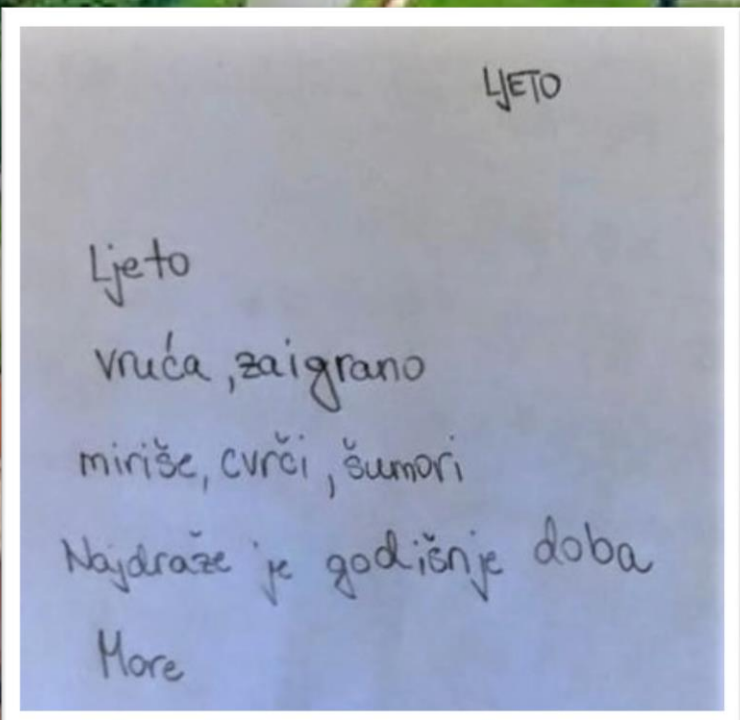 LJETO
Ljeto
vruća, zaigrano
miriše, cvrči, šumori
Najdraže je godišnje doba
More